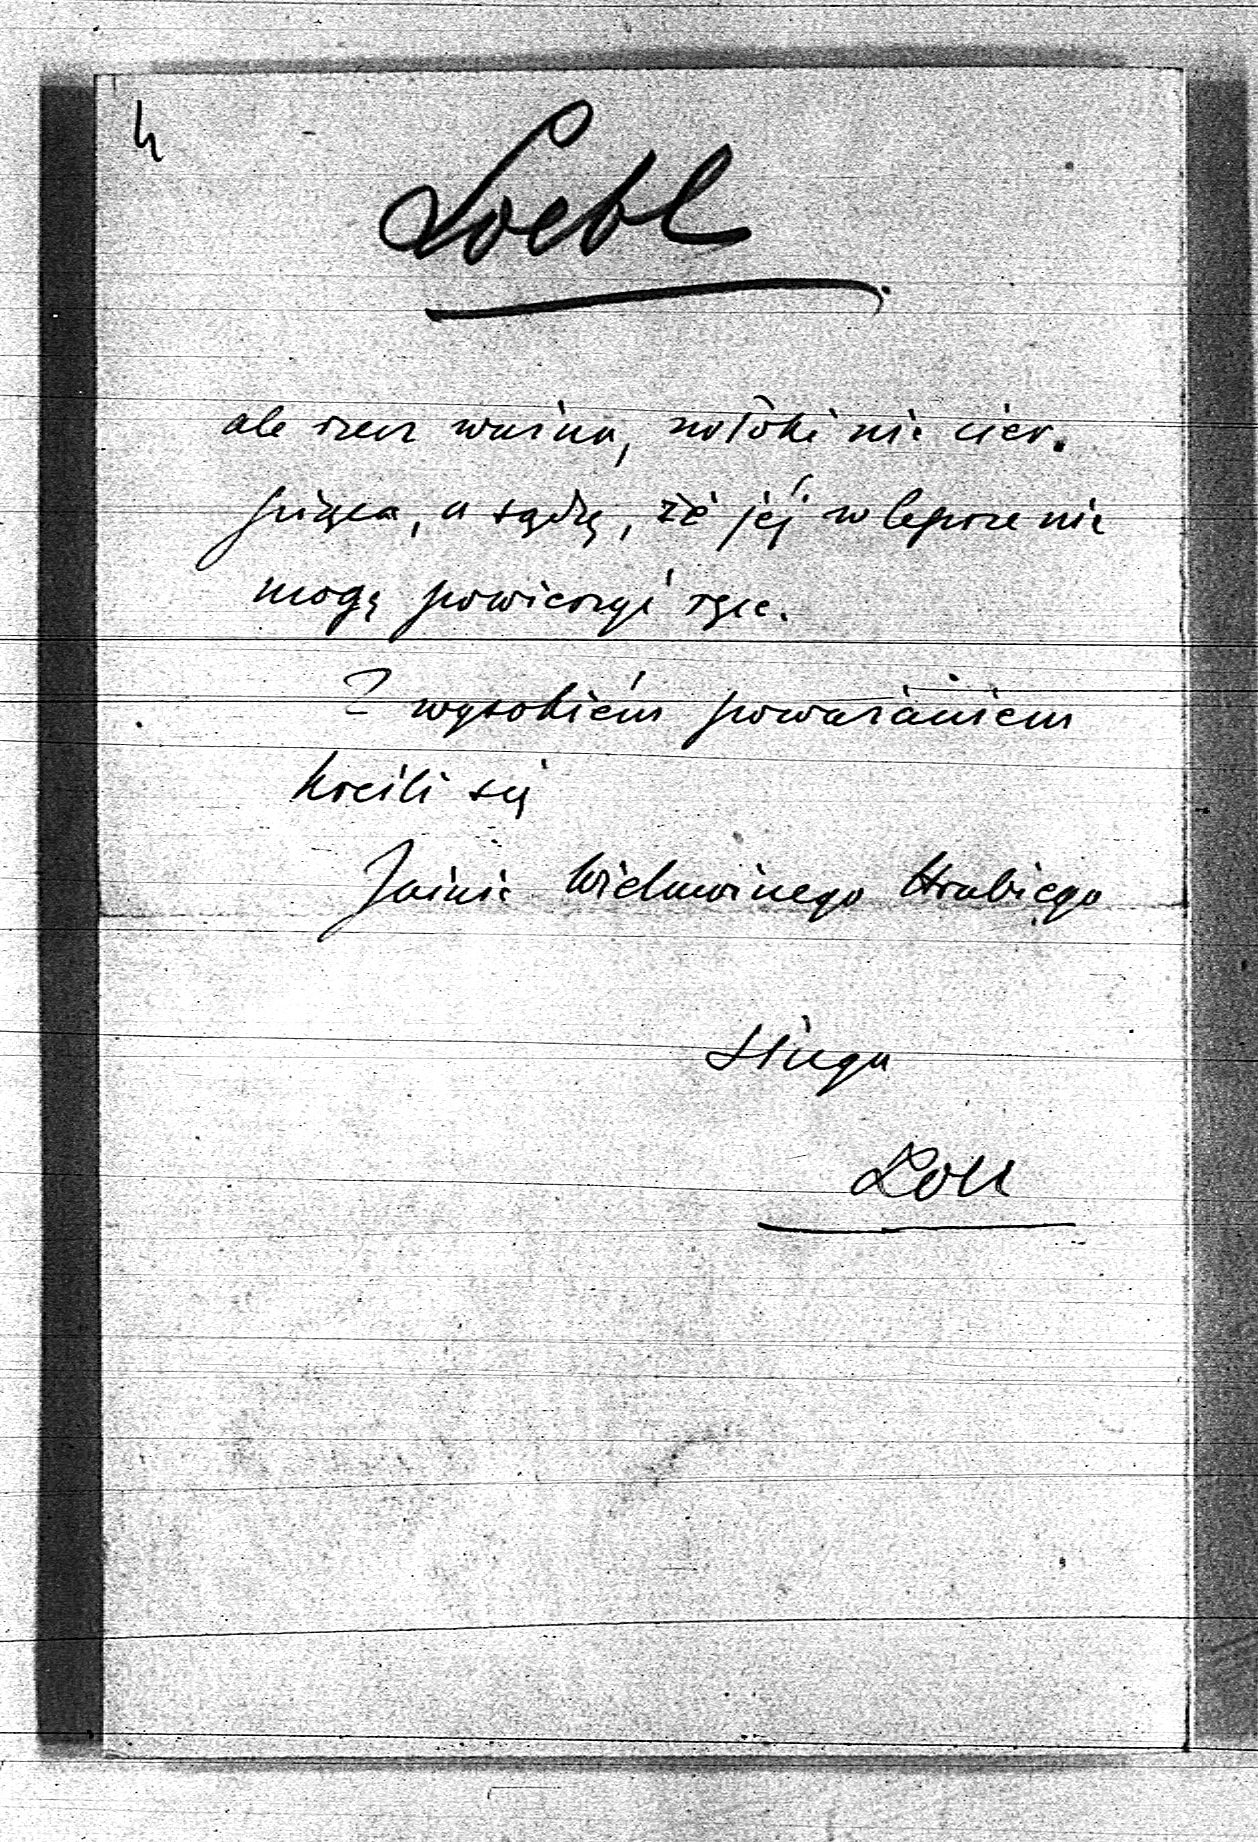 4
Loebl
ale rzecz ważna, zwłoki nie cier-
piąca, a sądzę, że jej w lepsze nie
mogę powierzyć ręce.
Z wysokiém poważaniem
kreśli się
Jaśnie Wielmożnego Hrabiego
sługa
Loll